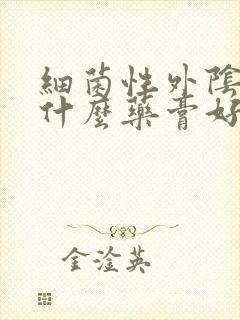 細菌性外陰
什麼藥膏好
金淦英